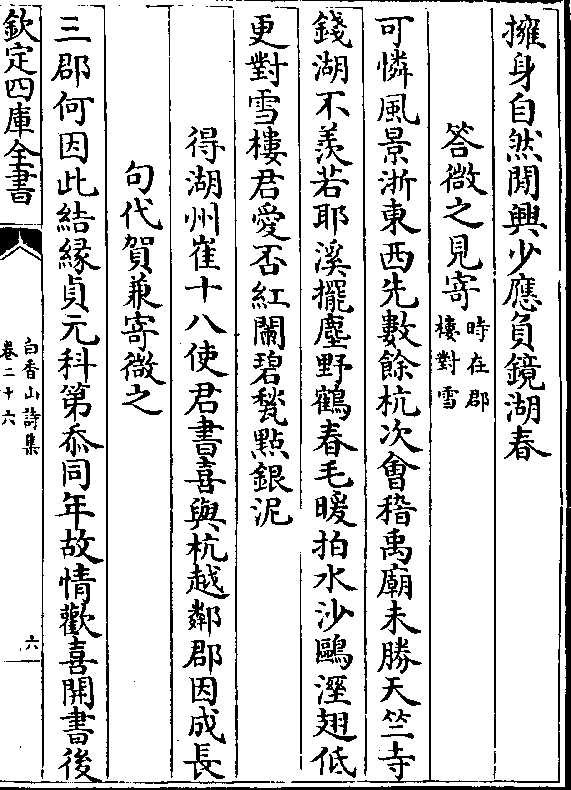 擁身自然閒興少應負鏡湖春
答微之見寄時在郡樓對雪
可憐風景浙東西先數餘杭次會稽禹廟未勝天竺寺
錢湖不羨若耶溪擺塵野鶴春毛暖拍水沙鷗溼翅低
更對雪樓君愛否紅闌碧甃點銀泥
得湖州崔十八使君書喜與杭越鄰郡因成長
句代賀兼寄微之
三郡何因此結緣貞元科第忝同年故情歡喜開書後
欽定四庫全書
白香山詩集
卷二十六
六